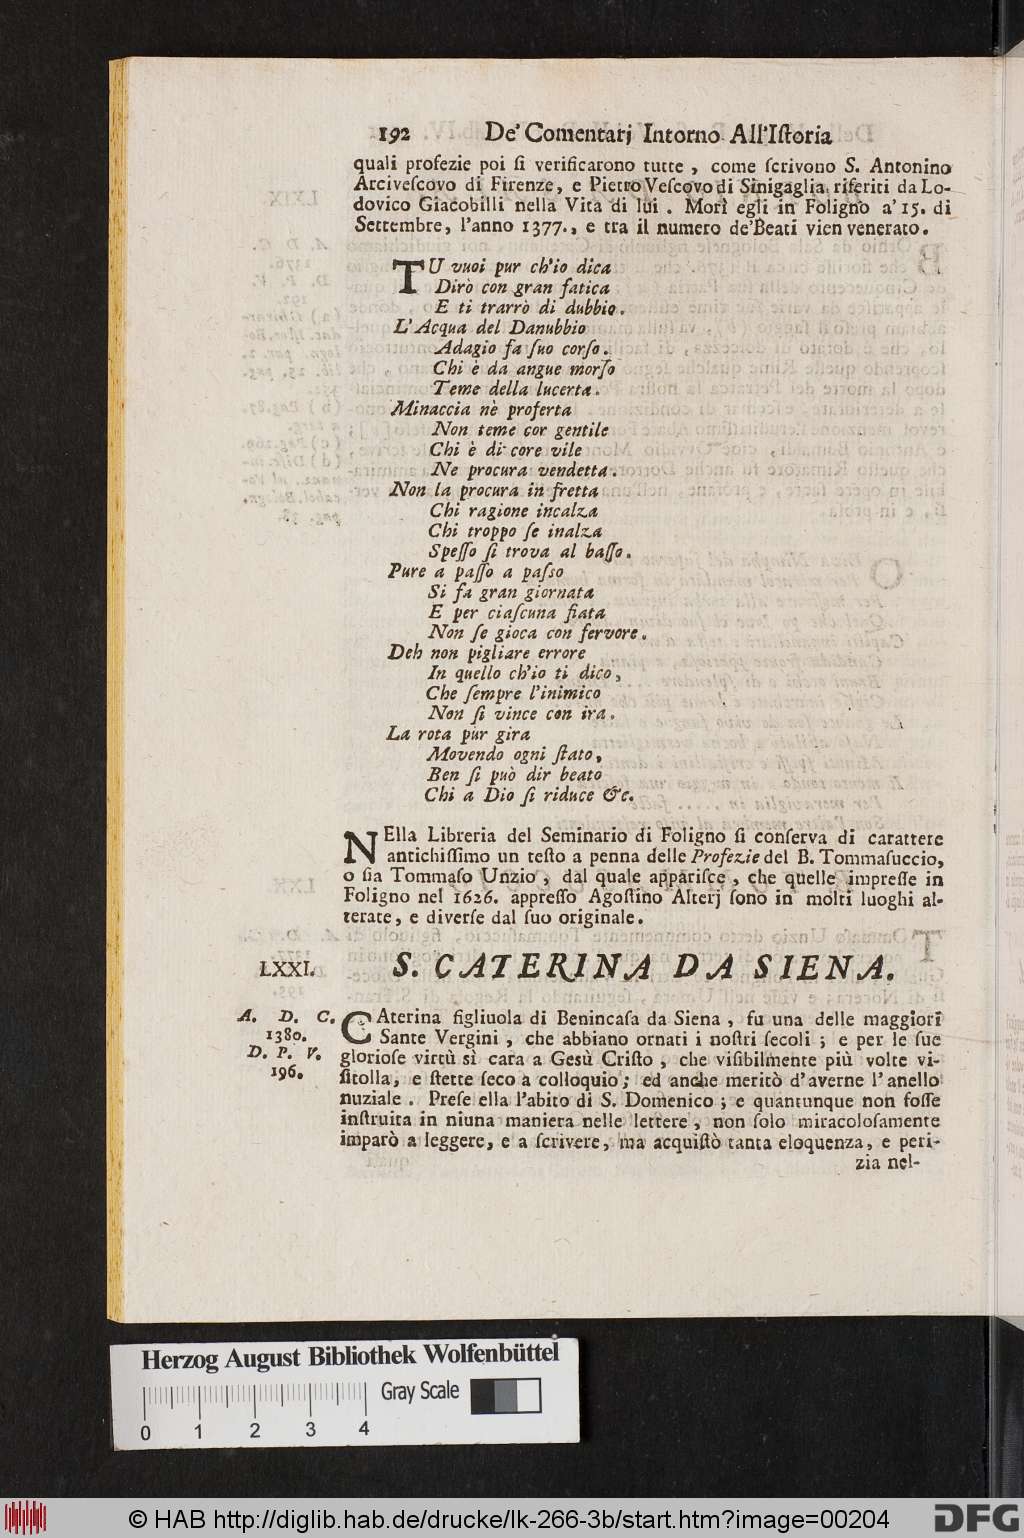 192 De' Comentarj Intorno All'Iſtoria
quali profezie poi ſi verificarono tutte, come ſcrivono S. Antonino
Arciveſcovo di Firenze, e Pietro Veſcovo di Sinigaglia riferiti da Lo-
dovico Giacobilli nella Vita di lui. Morì egli in Foligno a' 15. di
Settembre, l'anno 1377., e tra il numero de' Beati vien venerato.
TU vuoi pur ch'io dica
Dirò con gran fatica
E ti trarrò di dubbio.
L'Acqua del Danubbio
Adagio fa ſuo corſo.
Chi è da angue morſo
Teme della lucerta.
Minaccia nè proferta
Non teme cor gentile
Chi è di core vile
Ne procura vendetta.
Non la procura in fretta
Chi ragione incalza
Chi troppo ſe inalza
Speſſo ſi trova al baſſo.
Pure a paſſo a paſso
Si fa gran giornata
E per ciaſcuna fiata
Non ſe gioca con fervore.
Deh non pigliare errore
In quello ch'io ti dico,
Che ſempre l'inimico
Non ſi vince con ira.
La rota pur gira
Movendo ogni ſtato,
Ben ſi può dir beato
Chi a Dio ſi riduce &c.
NElla Libreria del Seminario di Foligno ſi conſerva di carattere
antichiſſimo un teſto a penna delle Profezie del B. Tommaſuccio,
o ſia Tommaſo Unzio, dal quale appariſce, che quelle impreſſe in
Foligno nel 1626. appreſſo Agoſtino Alterj ſono in molti luoghi al-
terate, e diverſe dal ſuo originale.
LXXI. S. CATERINA DA SIENA.
A. D. C.
1380.
D. P. V.
196.
CAterina figliuola di Benincaſa da Siena, fu una delle maggiori
Sante Vergini, che abbiano ornati i noſtri ſecoli; e per le ſue
glorioſe virtù sì cara a Gesù Criſto, che viſibilmente più volte vi-
ſitolla, e ſtette ſeco a colloquio; ed anche meritò d'averne l'anello
nuziale. Preſe ella l'abito di S. Domenico; e quantunque non foſſe
inſtruita in niuna maniera nelle lettere, non ſolo miracoloſamente
imparò a leggere, e a ſcrivere, ma acquiſtò tanta eloquenza, e peri-
zia nel-
Herzog August Bibliothek Wolfenbüttel
Gray Scale
0 1 2 3 4
© HAB http://diglib.hab.de/drucke/lk-266-3b/start.htm?image=00204
DFG